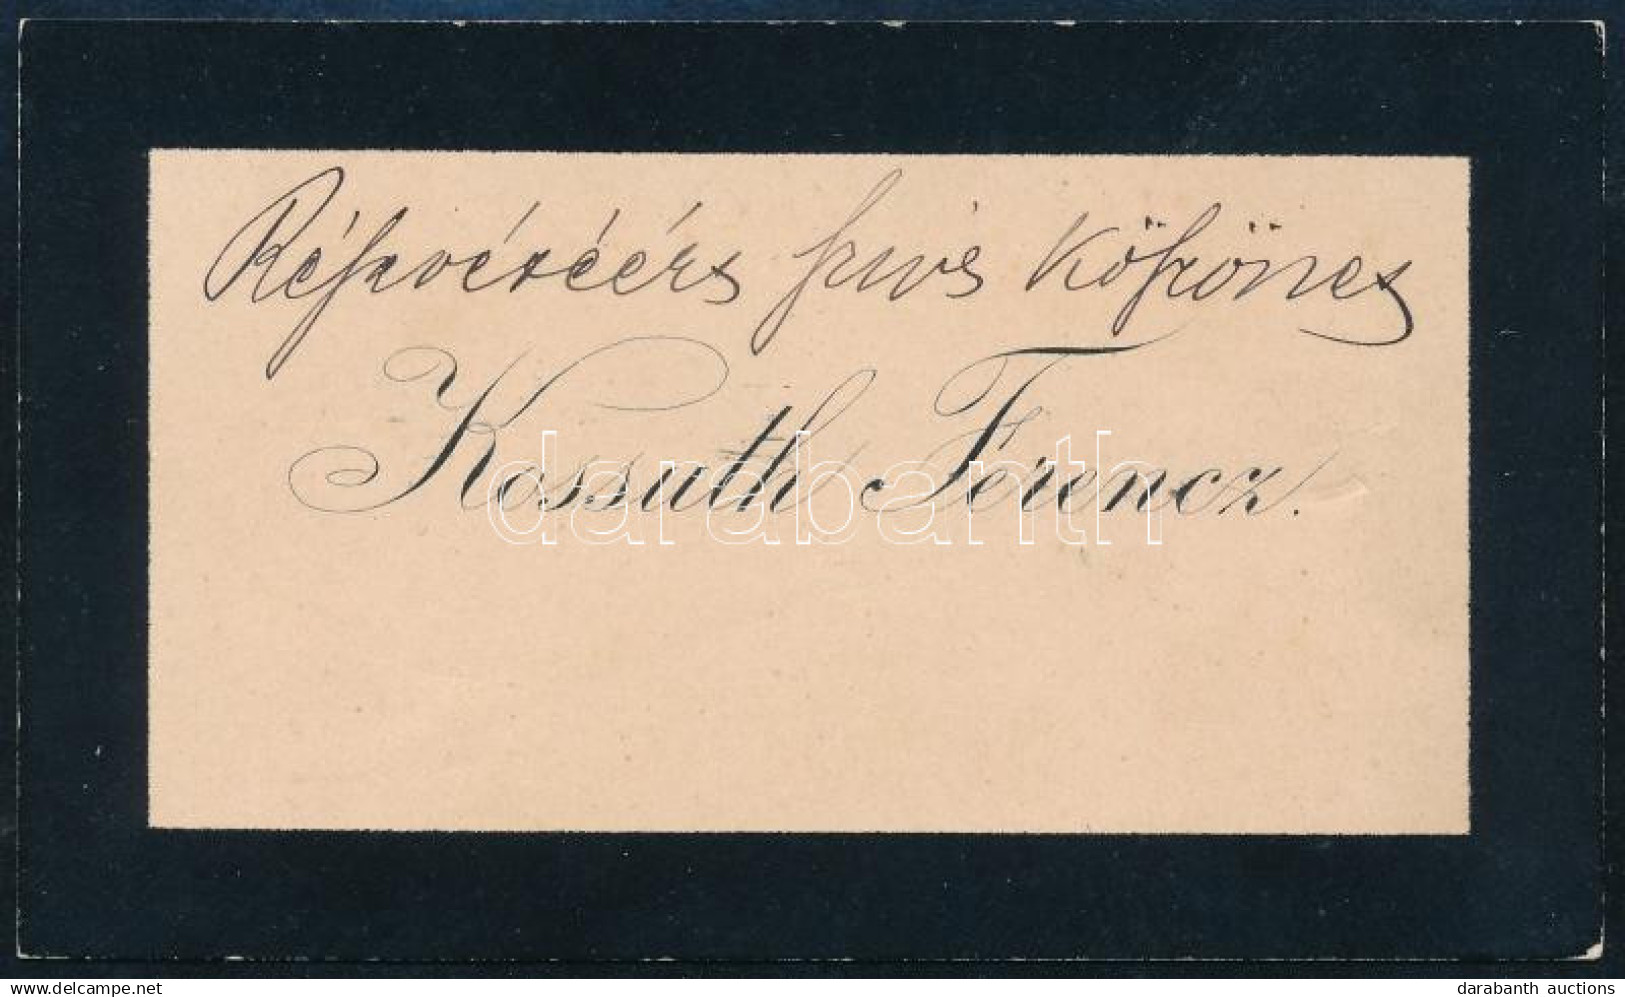 Részvétéért szives köszönet
Kossuth Ferencz.
darabanth
delcampe.net
darabanth auctions